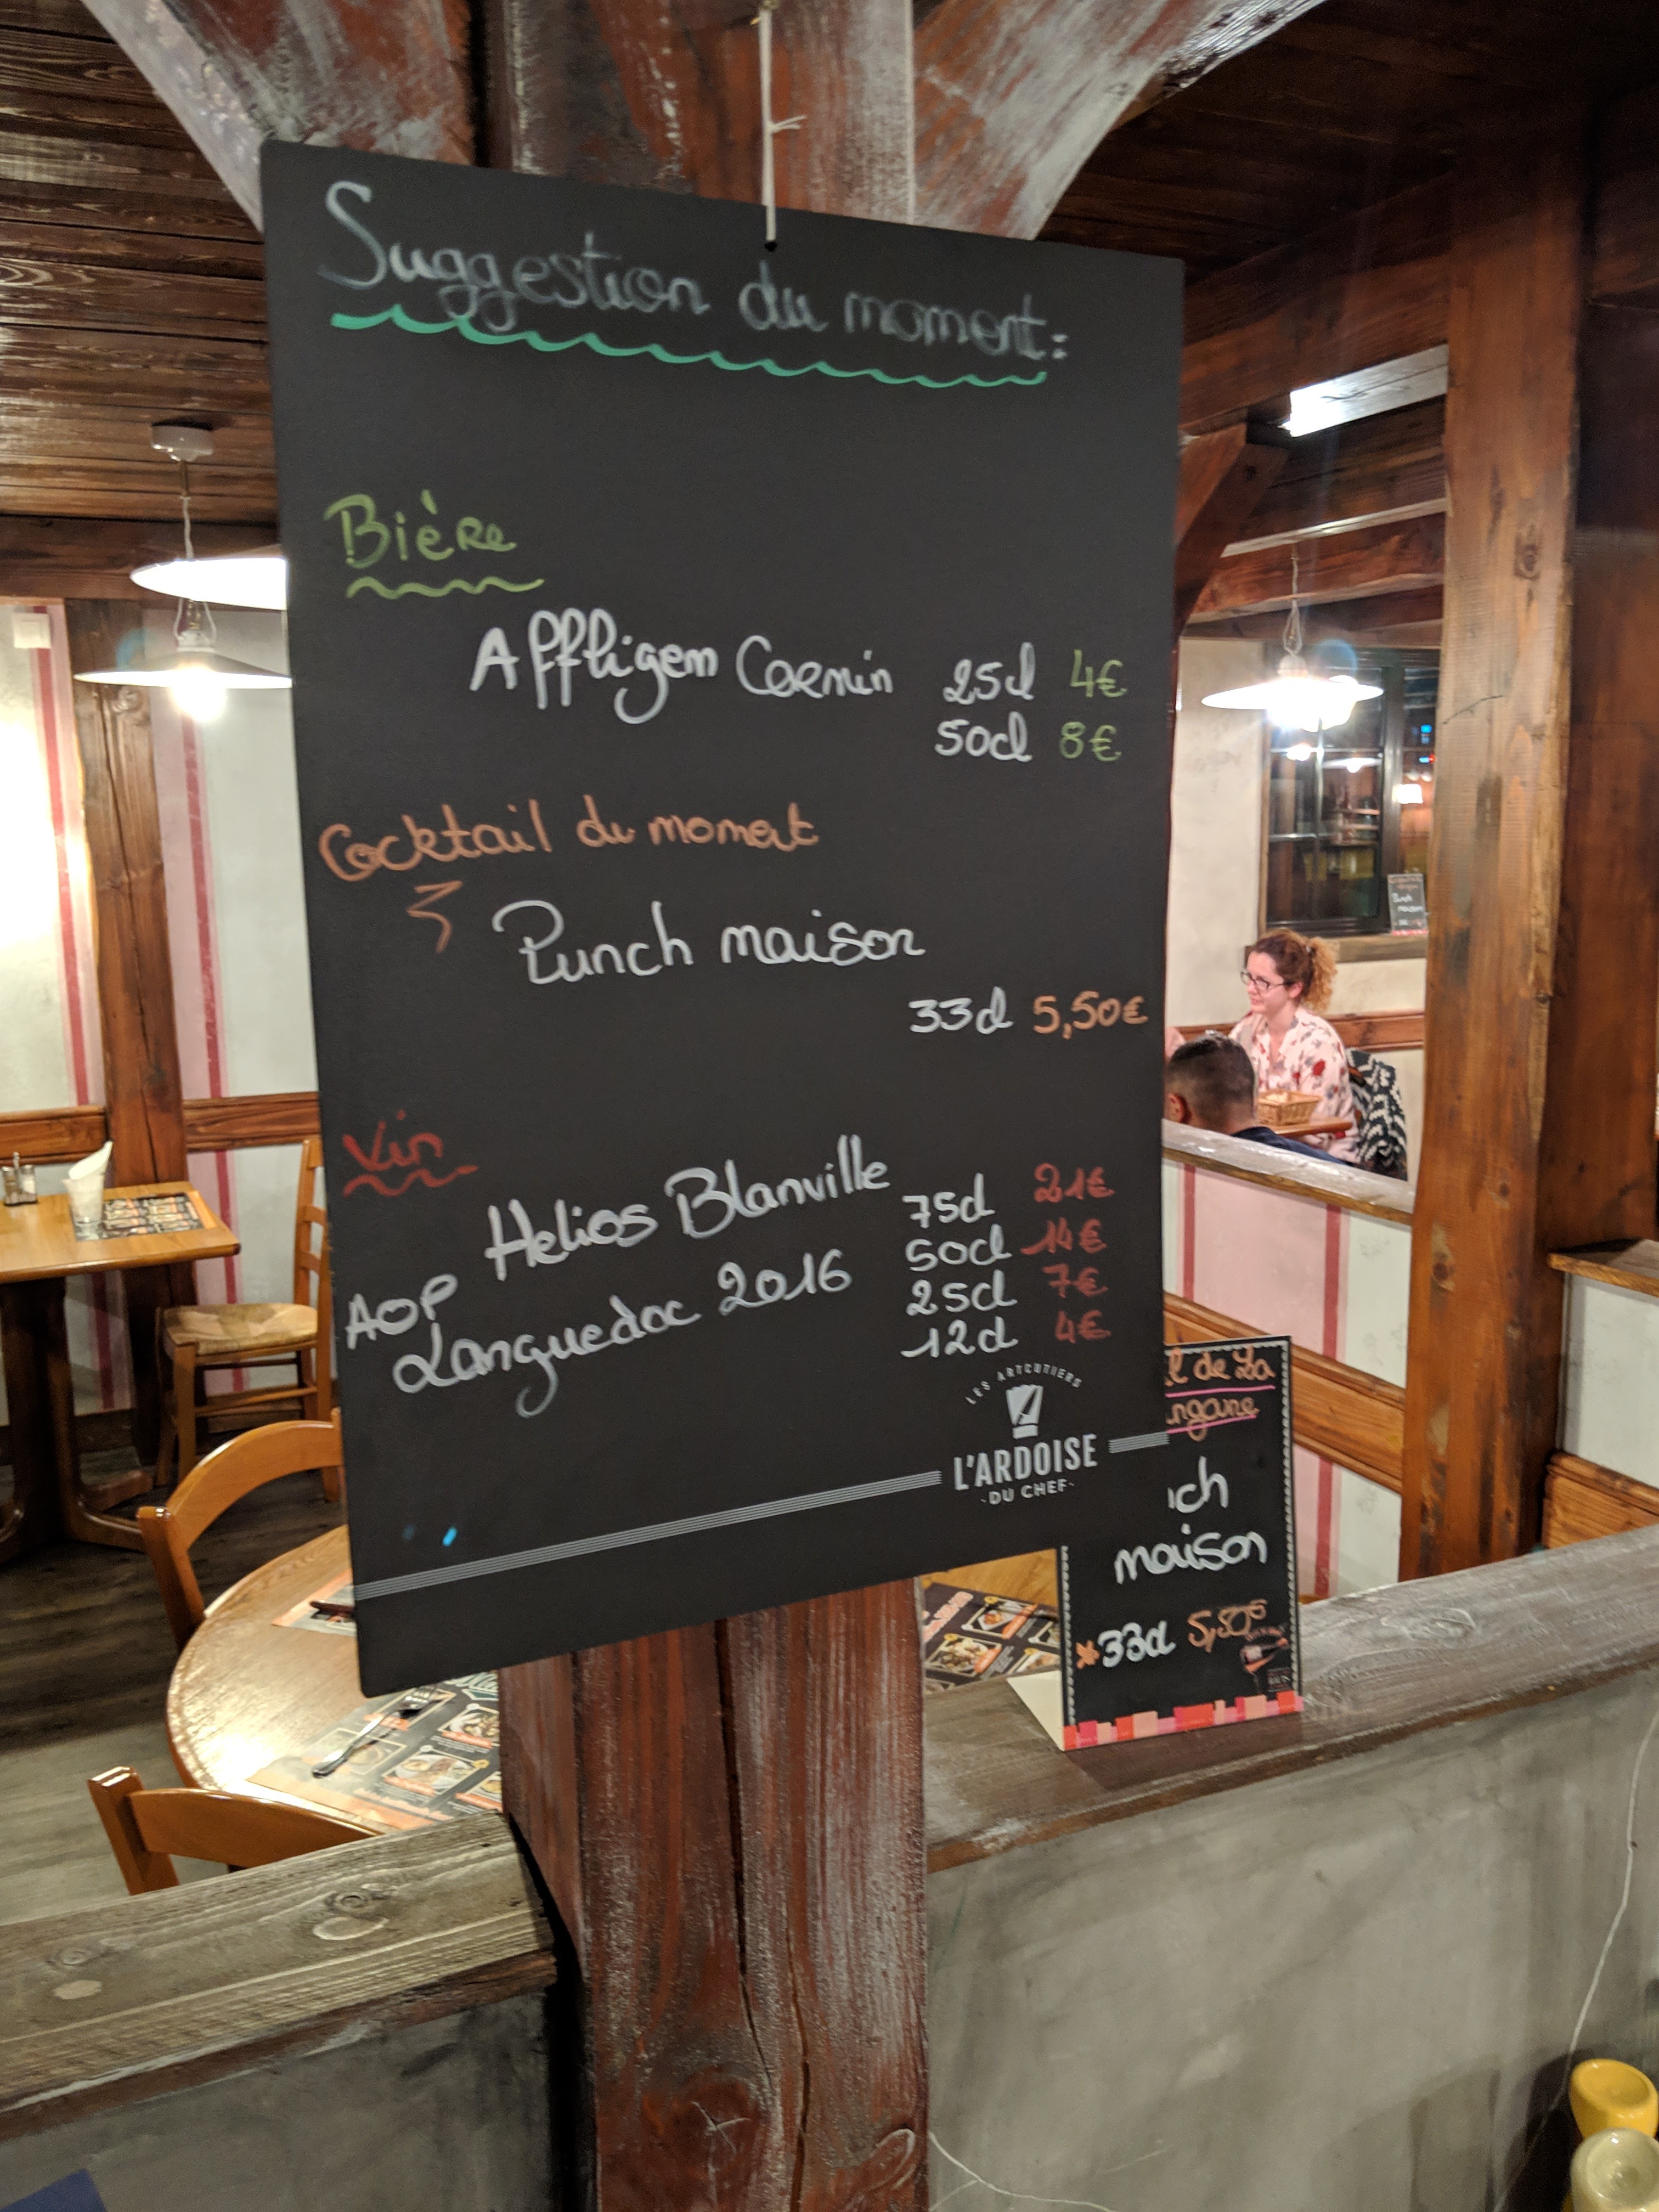 Suggestion du moment:
Bière
Affligem Carmin 25cl 4€
50cl 8€
Cocktail du moment
Punch maison
33cl 5,50€
Vin
Helios Blanville 75cl 21€
50cl 14€
AOP Languedoc 2016 25cl 7€
12cl 4€
LES ARTCUTIERS
L'ARDOISE
-DU CHEF-
l de La
ngane
ch
maison
*33cl 5,50€
Punch
maison